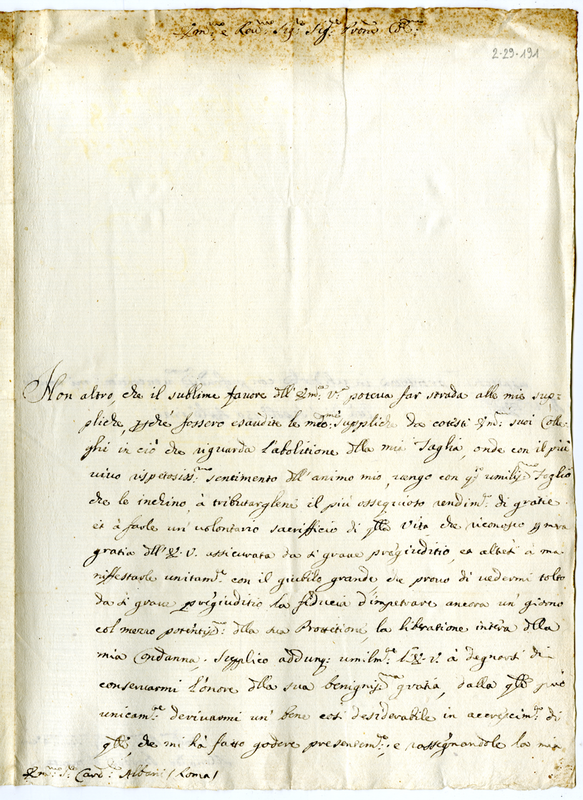 Em.mo e Rev.mo Sig.r Sig.r Pron̄e Col.mo
2-29-191
Non altro, che il sublime favore dell'Em.za V.ra poteva far strada alle mie sup-
pliche, perché fossero esaudite le med.me suppliche da cotesti Em.mi suoi Colle-
ghi in ciò che riguarda l'abolitione della mia Taglia, onde con il più
vivo rispetosiss.mo sentimento dell'animo mio, vengo con q.to umiliss.mo Foglio
che le inchino, à tributargliene il più ossequioso rendim.to di gratie
et à farle un volontario sacrifficio di q.lla Vita che riconosco p mera
gratia dell'E. V. assicurata da si grave pregiuditio, et altresì à ma-
niffestarle unitam.te con il giubilo grande che provo di vedermi tolto
da si grave pregiuditio la fiducia d'impetrare ancora un giorno
col mezzo potentiss.mo della sua Protettione, la liberatione intera della
mia Condanna. Supplico adunq; umilm.te l'E. V. à degnarsi di
conservarmi l'onore della sua benigniss.ma gratia, dalla q.le può
unicam.te derivarmi un bene così desiderabile in accrescim.to di
q.llo, che mi hà fatto godere presentem.te, e rassegnandole la mia
Em.mo S.r Card.le Albani (Roma)